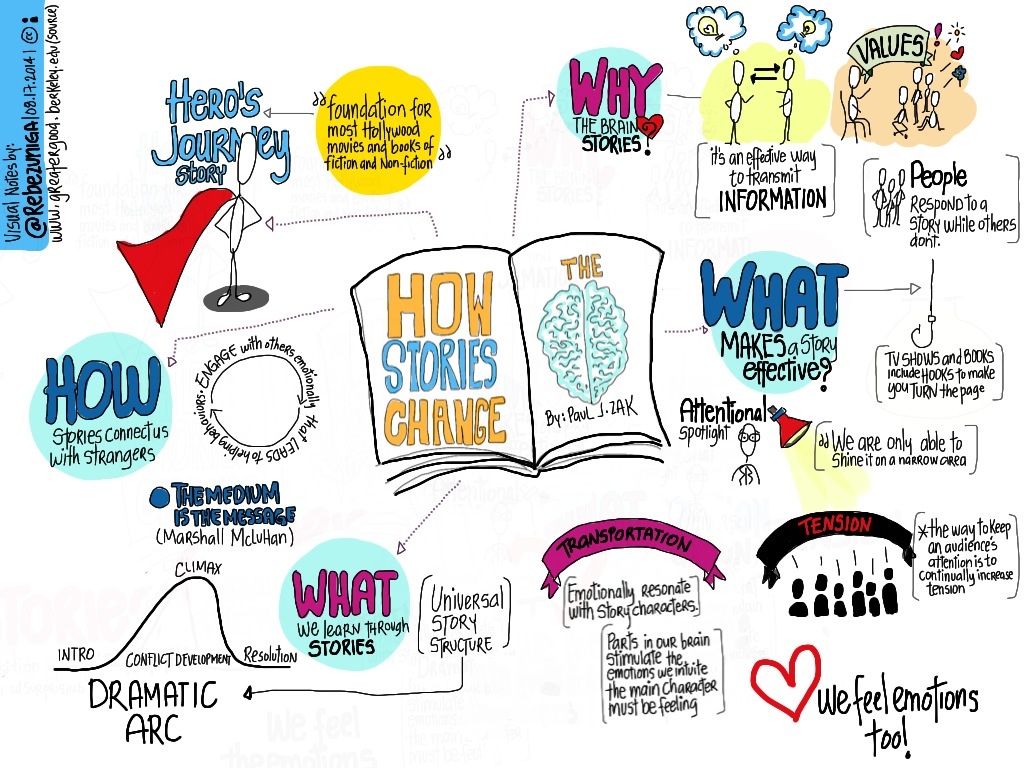 Visual Notes by:
@Rebezuniga | 08.17.2014 | cc
www.greatergood.berkeley.edu (source)
Hero's
Journey
Story
"Foundation for
most Hollywood
movies and books of
fiction and Non-fiction"
WHY
THE BRAIN
STORIES?
it's an effective way
to transmit
INFORMATION
VALUES
People
RESPOND to a
STORY while others
don't.
HOW
STORIES
CHANGE
THE
By: Paul J. ZAK
WHAT
MAKES a Story
effective?
TV SHOWS and BOOKS
include HOOKS to make
you TURN the page
Attentional
Spotlight
"We are only able to
Shine it on a narrow area
HOW
Stories connect us
with strangers
ENGAGE with others emotionally that LEADS to helping behaviors.
THE MEDIUM
IS THE MESSAGE
(Marshall McLuhan)
WHAT
We learn through
STORIES
Universal
STORY
STRUCTURE
CLIMAX
INTRO
CONFLICT DEVELOPMENT
Resolution
DRAMATIC
ARC
TRANSPORTATION
Emotionally resonate
with story characters.
Parts in our brain
stimulate the
emotions we intuite
the main character
must be feeling
TENSION
*the way to keep
an audience's
attention is to
continually increase
tension
We feel emotions
too!